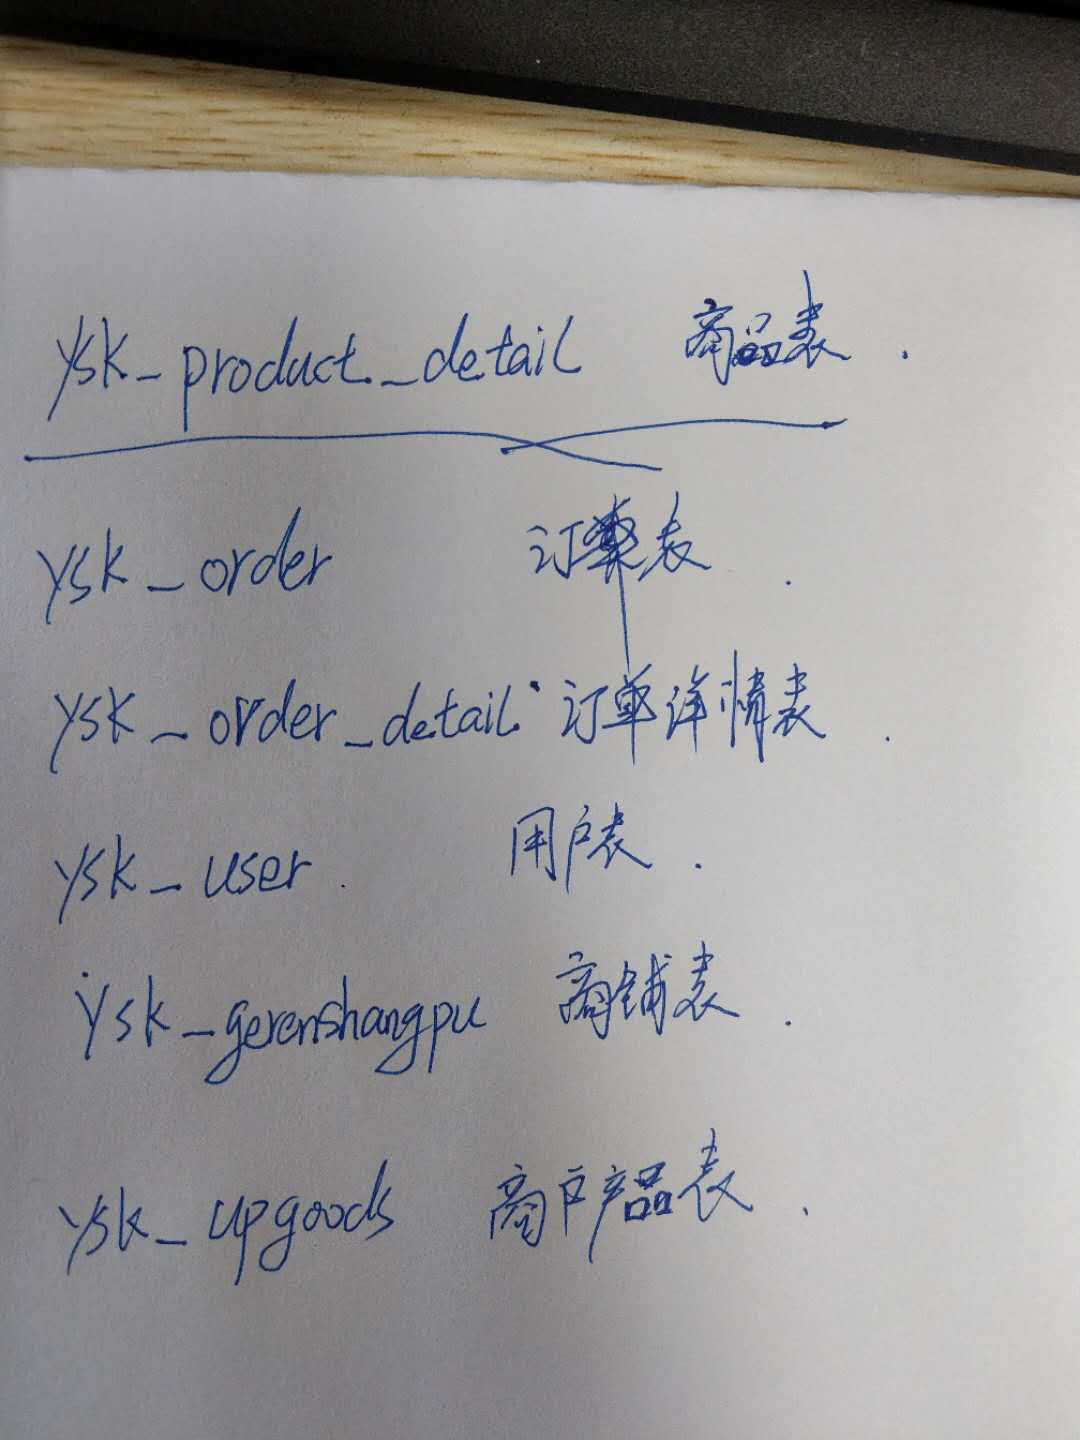 ysk_product_detail 商品表.
ysk_order 订单表.
ysk_order_detail 订单详情表.
ysk_user 用户表.
ysk_gerenshangpu 商铺表.
ysk_upgoods 商户产品表.